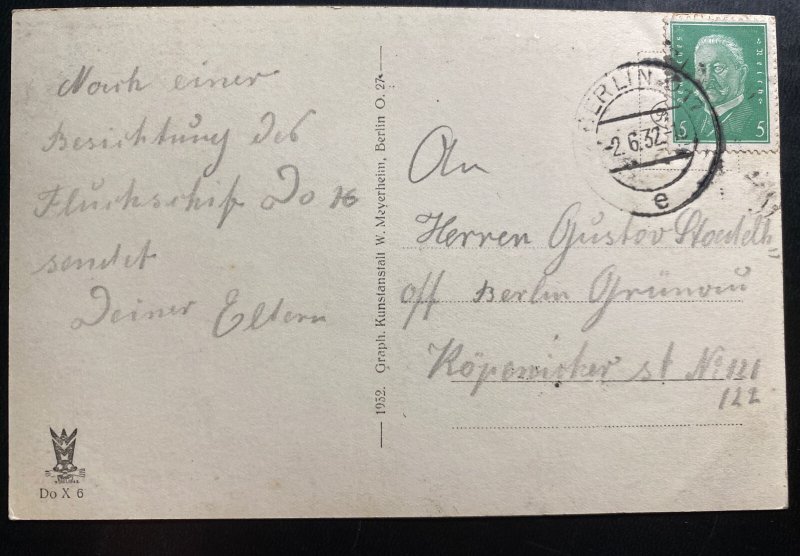 Nach einer
Besichtung des
Fluchschif Do X
sendet
Deiner Eltern
Do X 6
1932. Graph. Kunstanstalt W. Meyerheim, Berlin O. 27
BERLIN
-2.6.32
e
5 5
An
Herren Gustav
Berlin Grünau
Köpenicker st No 121
122